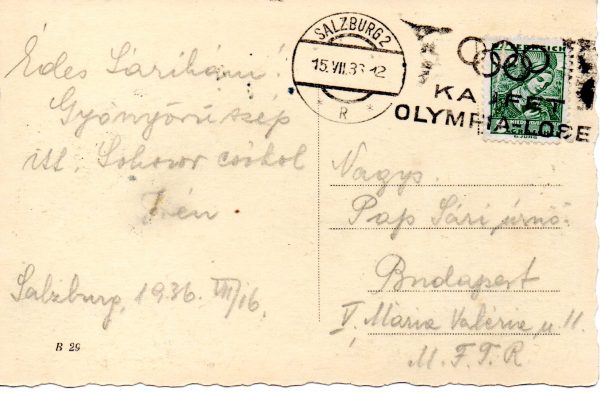 Édes Sárikám!
Gyönyörű szép
itt. Sokszor csókol
Irén
Salzburg, 1936. VII/16.
B 29
SALZBURG 2
15.VII.36-12
R
KAUFET
OLYMPIA-LOSE
ÖSTERREICH
Nagys.
Pap Sári úrnő.
Budapest
V. Mária Valéria u 11.
M. F. T. R